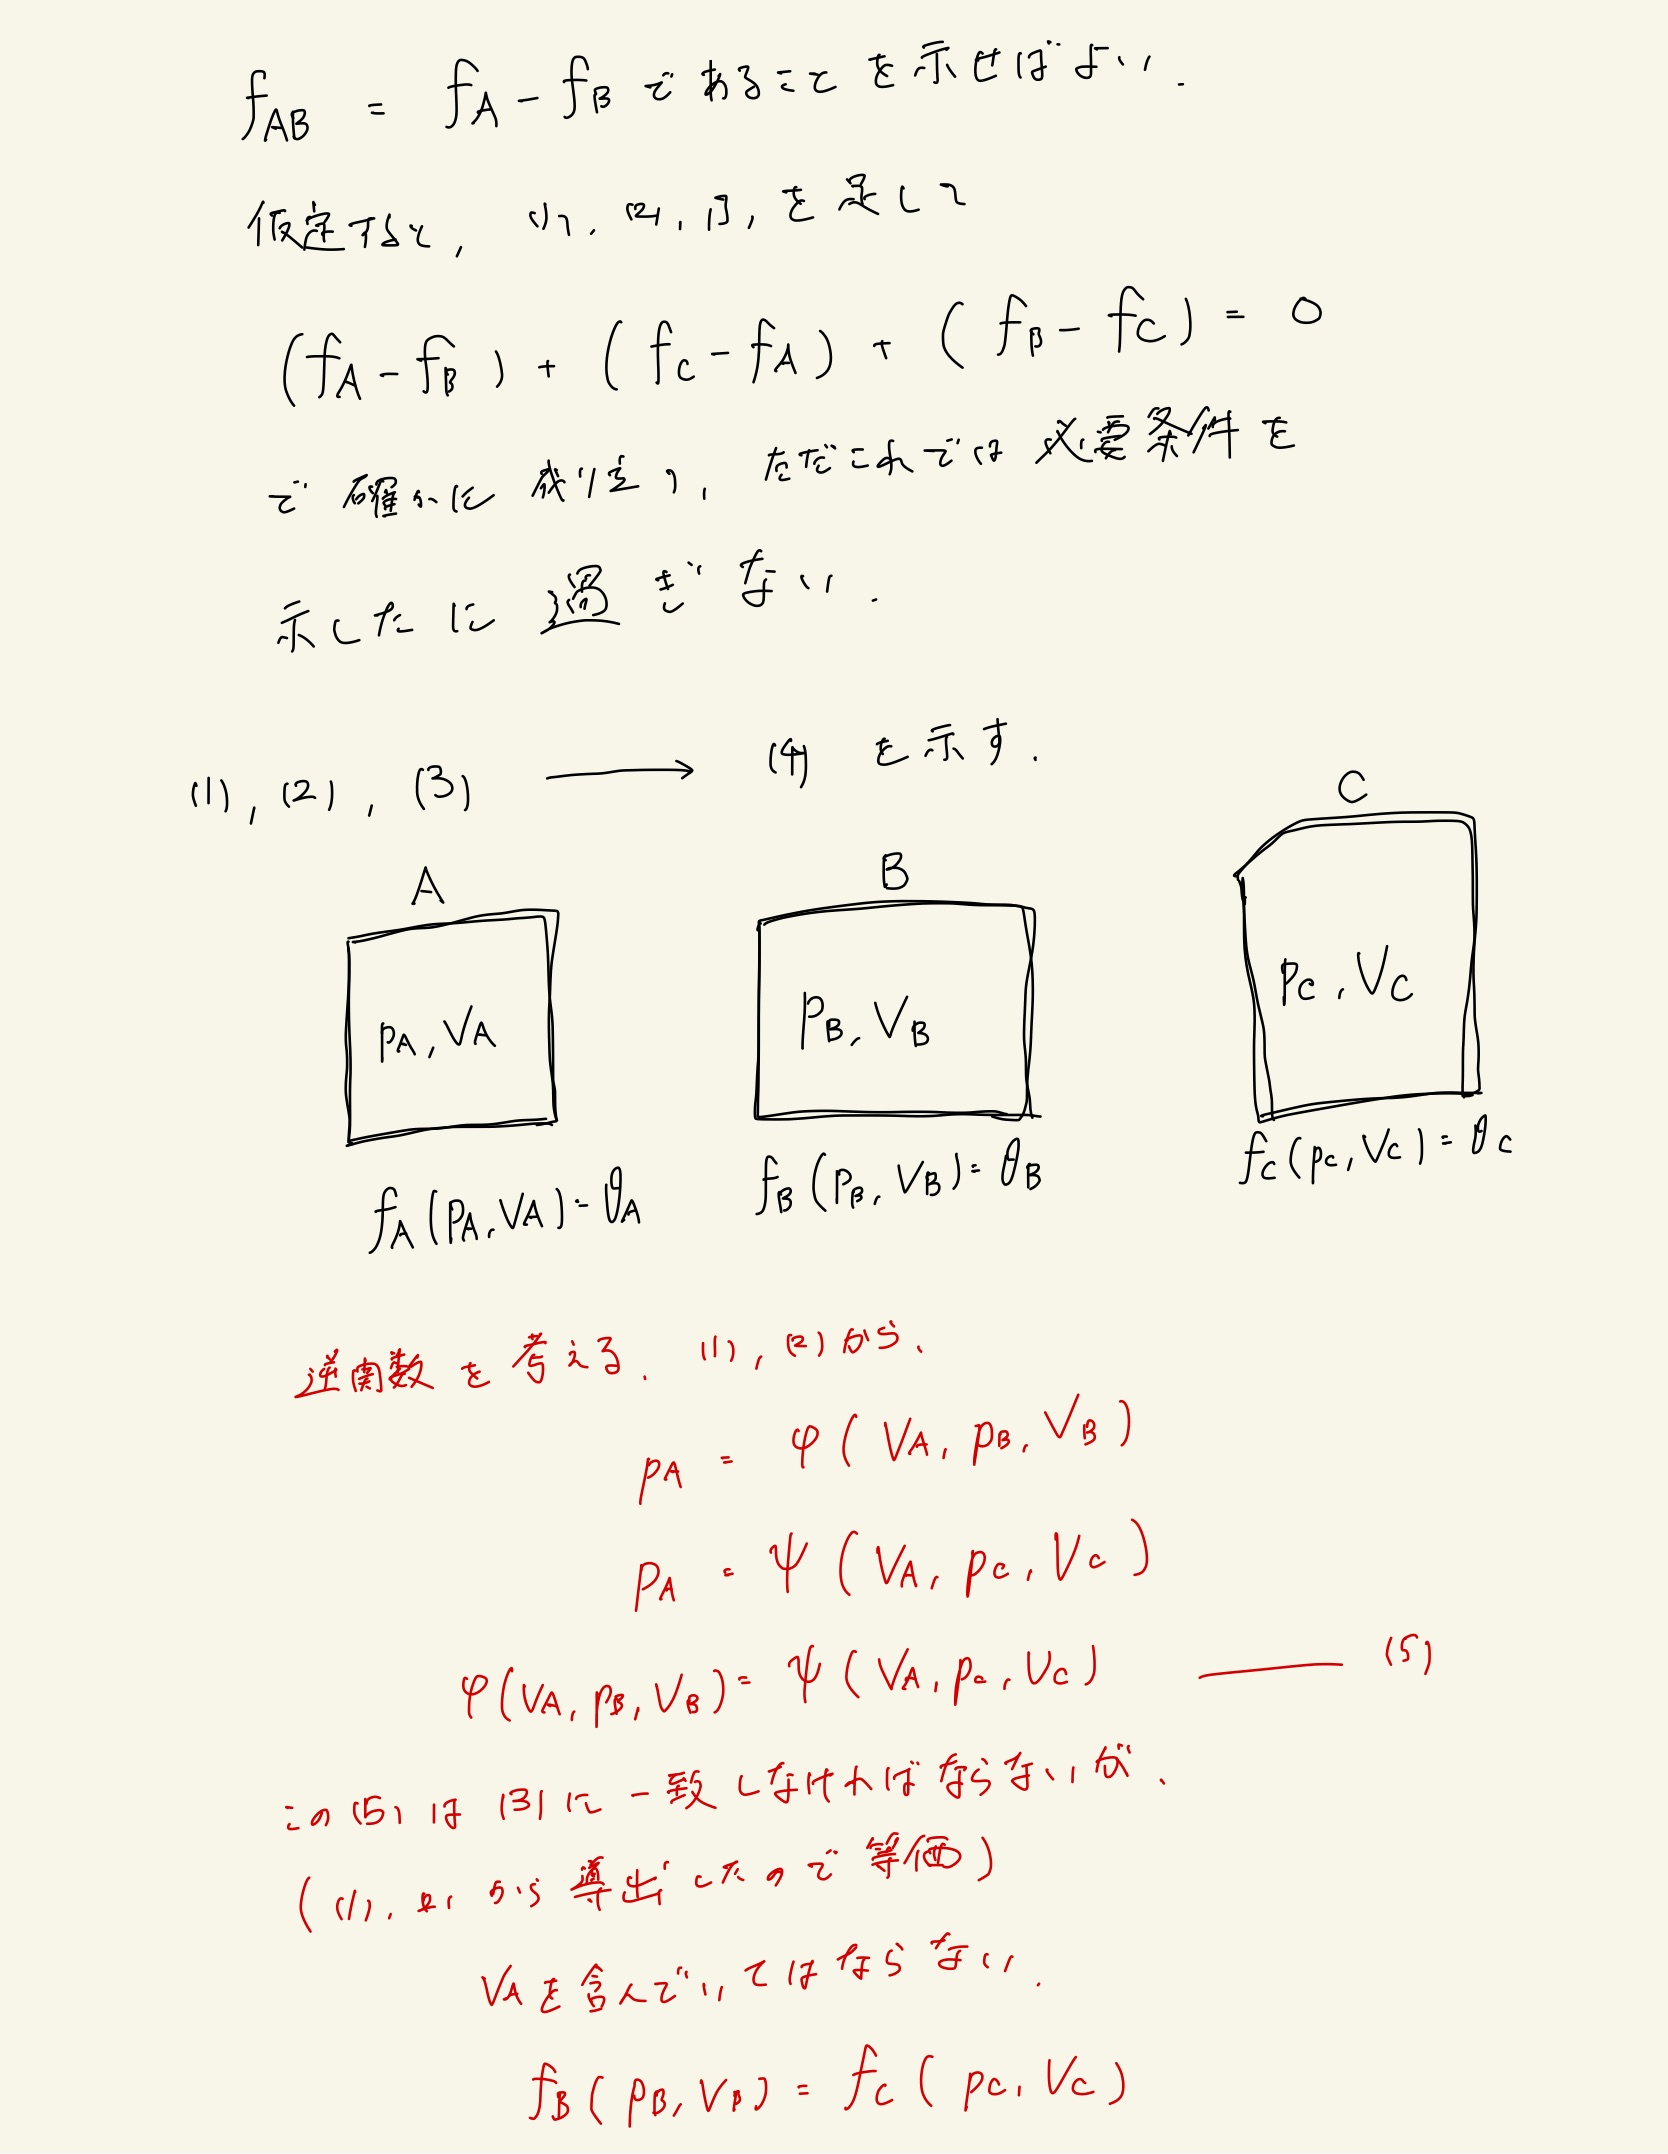 f_AB = f_A - f_B であることを示せばよい.
仮定すると, (1), (2), (3), を足して
(f_A - f_B) + (f_C - f_A) + (f_B - f_C) = 0
で確かに成り立つ, ただこれでは必要条件を
示したに過ぎない.
(1), (2), (3) → (4) を示す.
A B C
p_A, V_A p_B, V_B p_C, V_C
f_A(p_A, V_A) = θ_A f_B(p_B, V_B) = θ_B f_C(p_C, V_C) = θ_C
逆関数を考える. (1), (2)から,
p_A = φ(V_A, p_B, V_B)
p_A = ψ(V_A, p_C, V_C)
φ(V_A, p_B, V_B) = ψ(V_A, p_C, V_C) —— (5)
この(5)は(3)に一致しなければならないが,
((1), (2)から導出したので等価)
V_Aを含んでいてはならない.
f_B(p_B, V_B) = f_C(p_C, V_C)